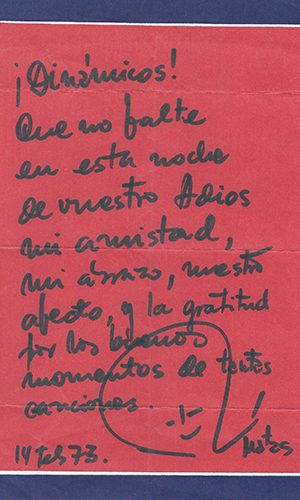 ¡Dinámicos!
Que no falte
en esta noche
de vuestro Adios
mi amistad,
mi abrazo, nuestro
afecto, y la gratitud
por los buenos
momentos de tantas
canciones.
14 Feb 73.